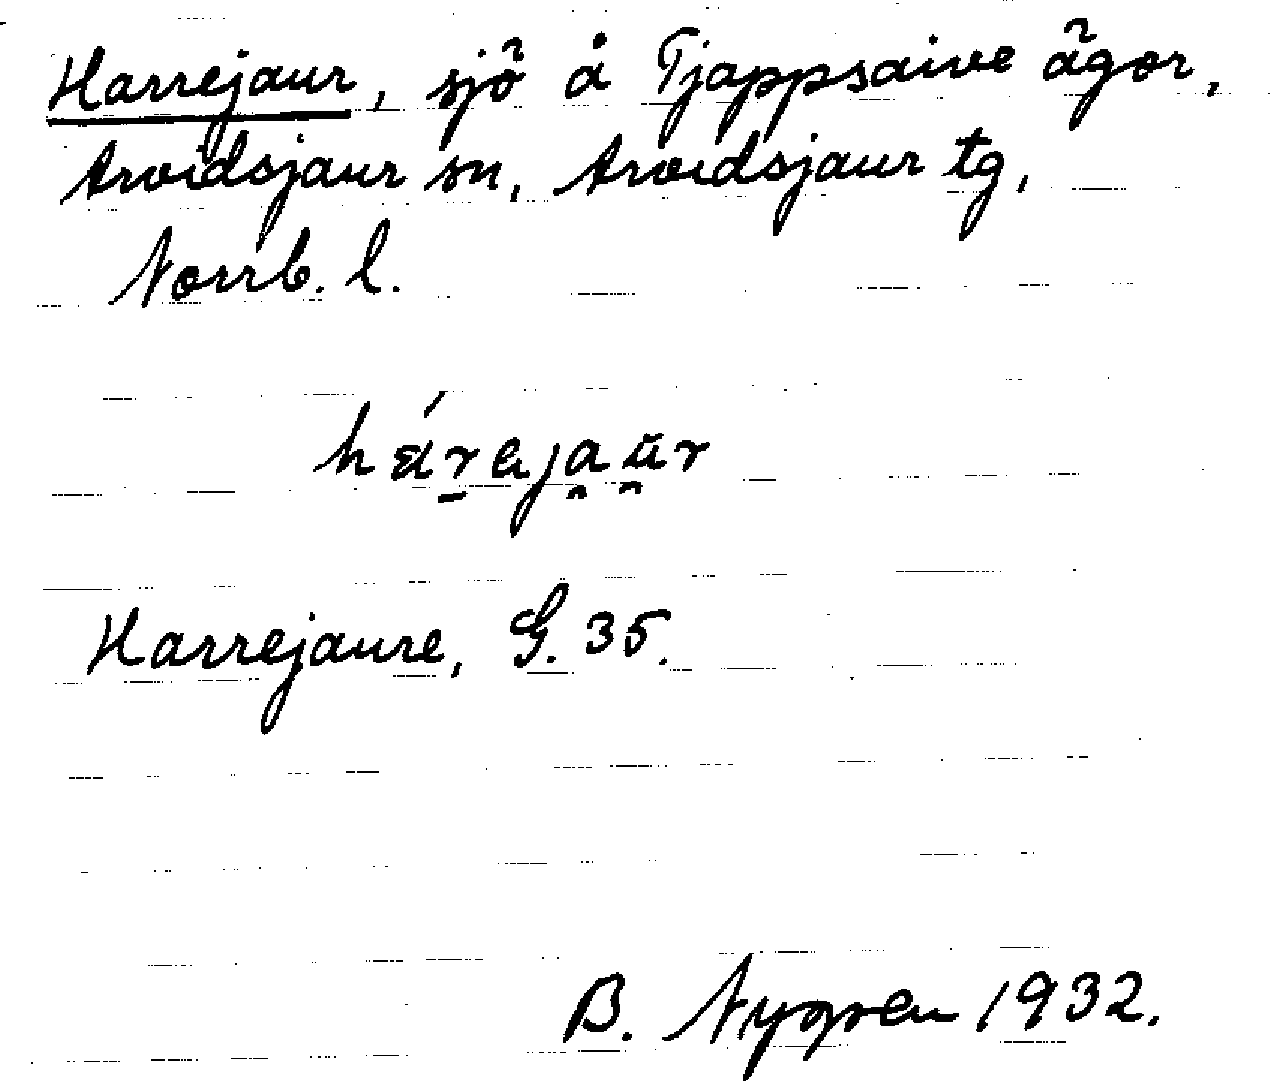 Harrejaur, sjö å Tjappsaive ägor,
Arvidsjaur sn, Arvidsjaur tg,
Norrb. l.
Harrejaure, G. 35.
B. Nygren 1932.